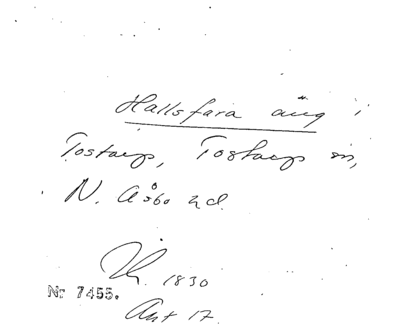 Hallsfara äng i
Tostarp, Tostarp sn,
N. Åsbo hd.
1830
Nr 7455.
Akt 17.